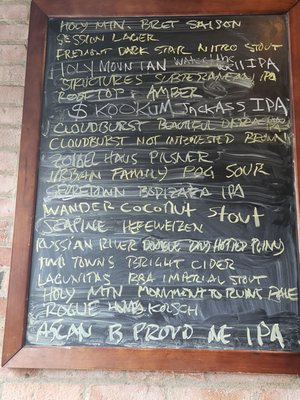 HOLY MTN. BRET SAISON
SESSION LAGER
FREMONT DARK STAR NITRO STOUT
HOLY MOUNTAIN IPA
STRUCTURES SUBTERRANEAN IPA
ROOFTOP AMBER
$ KOOKUM JACKASS IPA
CLOUDBURST BEAUTIFUL
CLOUDBURST NOT INTERESTED BROWN
HAUS PILSNER
URBAN FAMILY POG SOUR
GEORGETOWN BODIZAFA IPA
WANDER COCONUT STOUT
SCAPINE HEFEWEIZEN
RUSSIAN RIVER DOUBLE DRY HOPPED PLINY
TWO TOWNS BRIGHT CIDER
LAGUNITAS RBA IMPERIAL STOUT
HOLY MTN MONUMENT TO RUINS PALE
ROGUE HONEY KOLSCH
ASLAN B PROUD NE. IPA